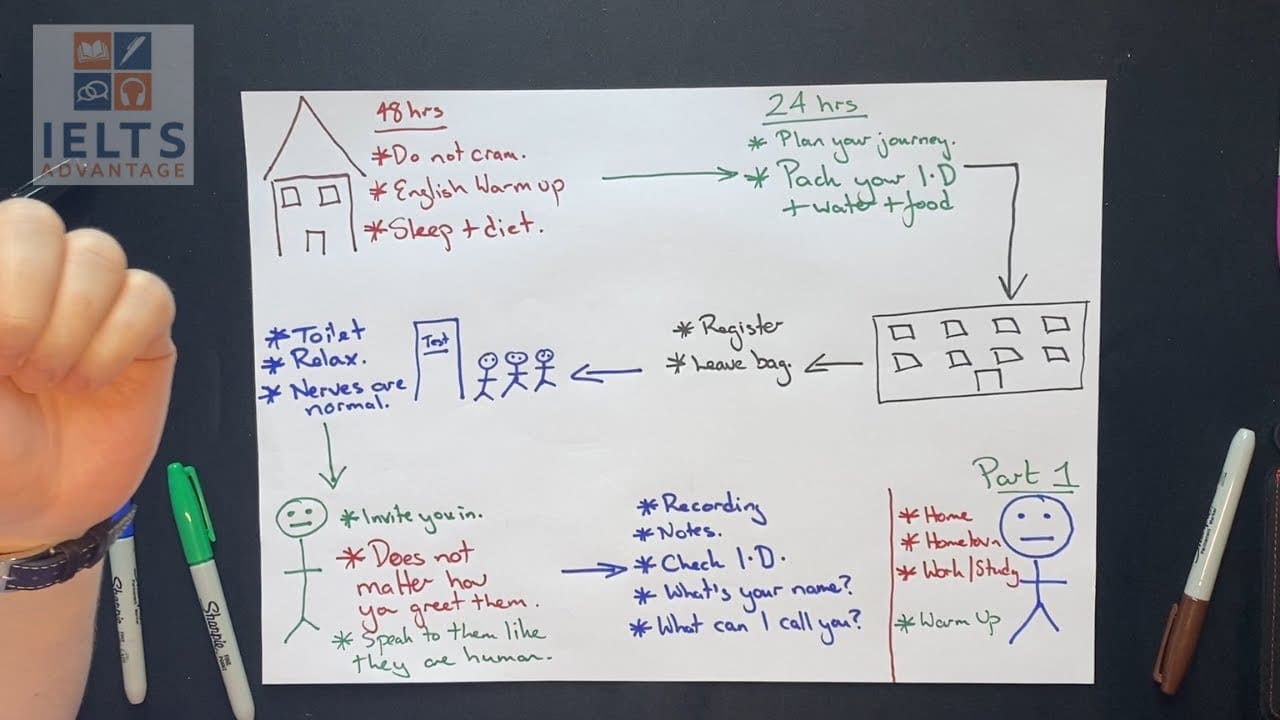 IELTS
ADVANTAGE
48 hrs
* Do not cram.
* English Warm up
* Sleep + diet.
24 hrs
* Plan your journey.
* Pack your I.D
+ water + food
* Register
* Leave bag.
Test
* Toilet
* Relax.
* Nerves are
normal.
* Invite you in.
* Does not
matter how
you greet them.
* Speak to them like
they are human.
* Recording
* Notes.
* Check I.D.
* What's your name?
* What can I call you?
Part 1
* Home
* Hometown
* Work/Study
* Warm Up
Sharpie
Sharpie